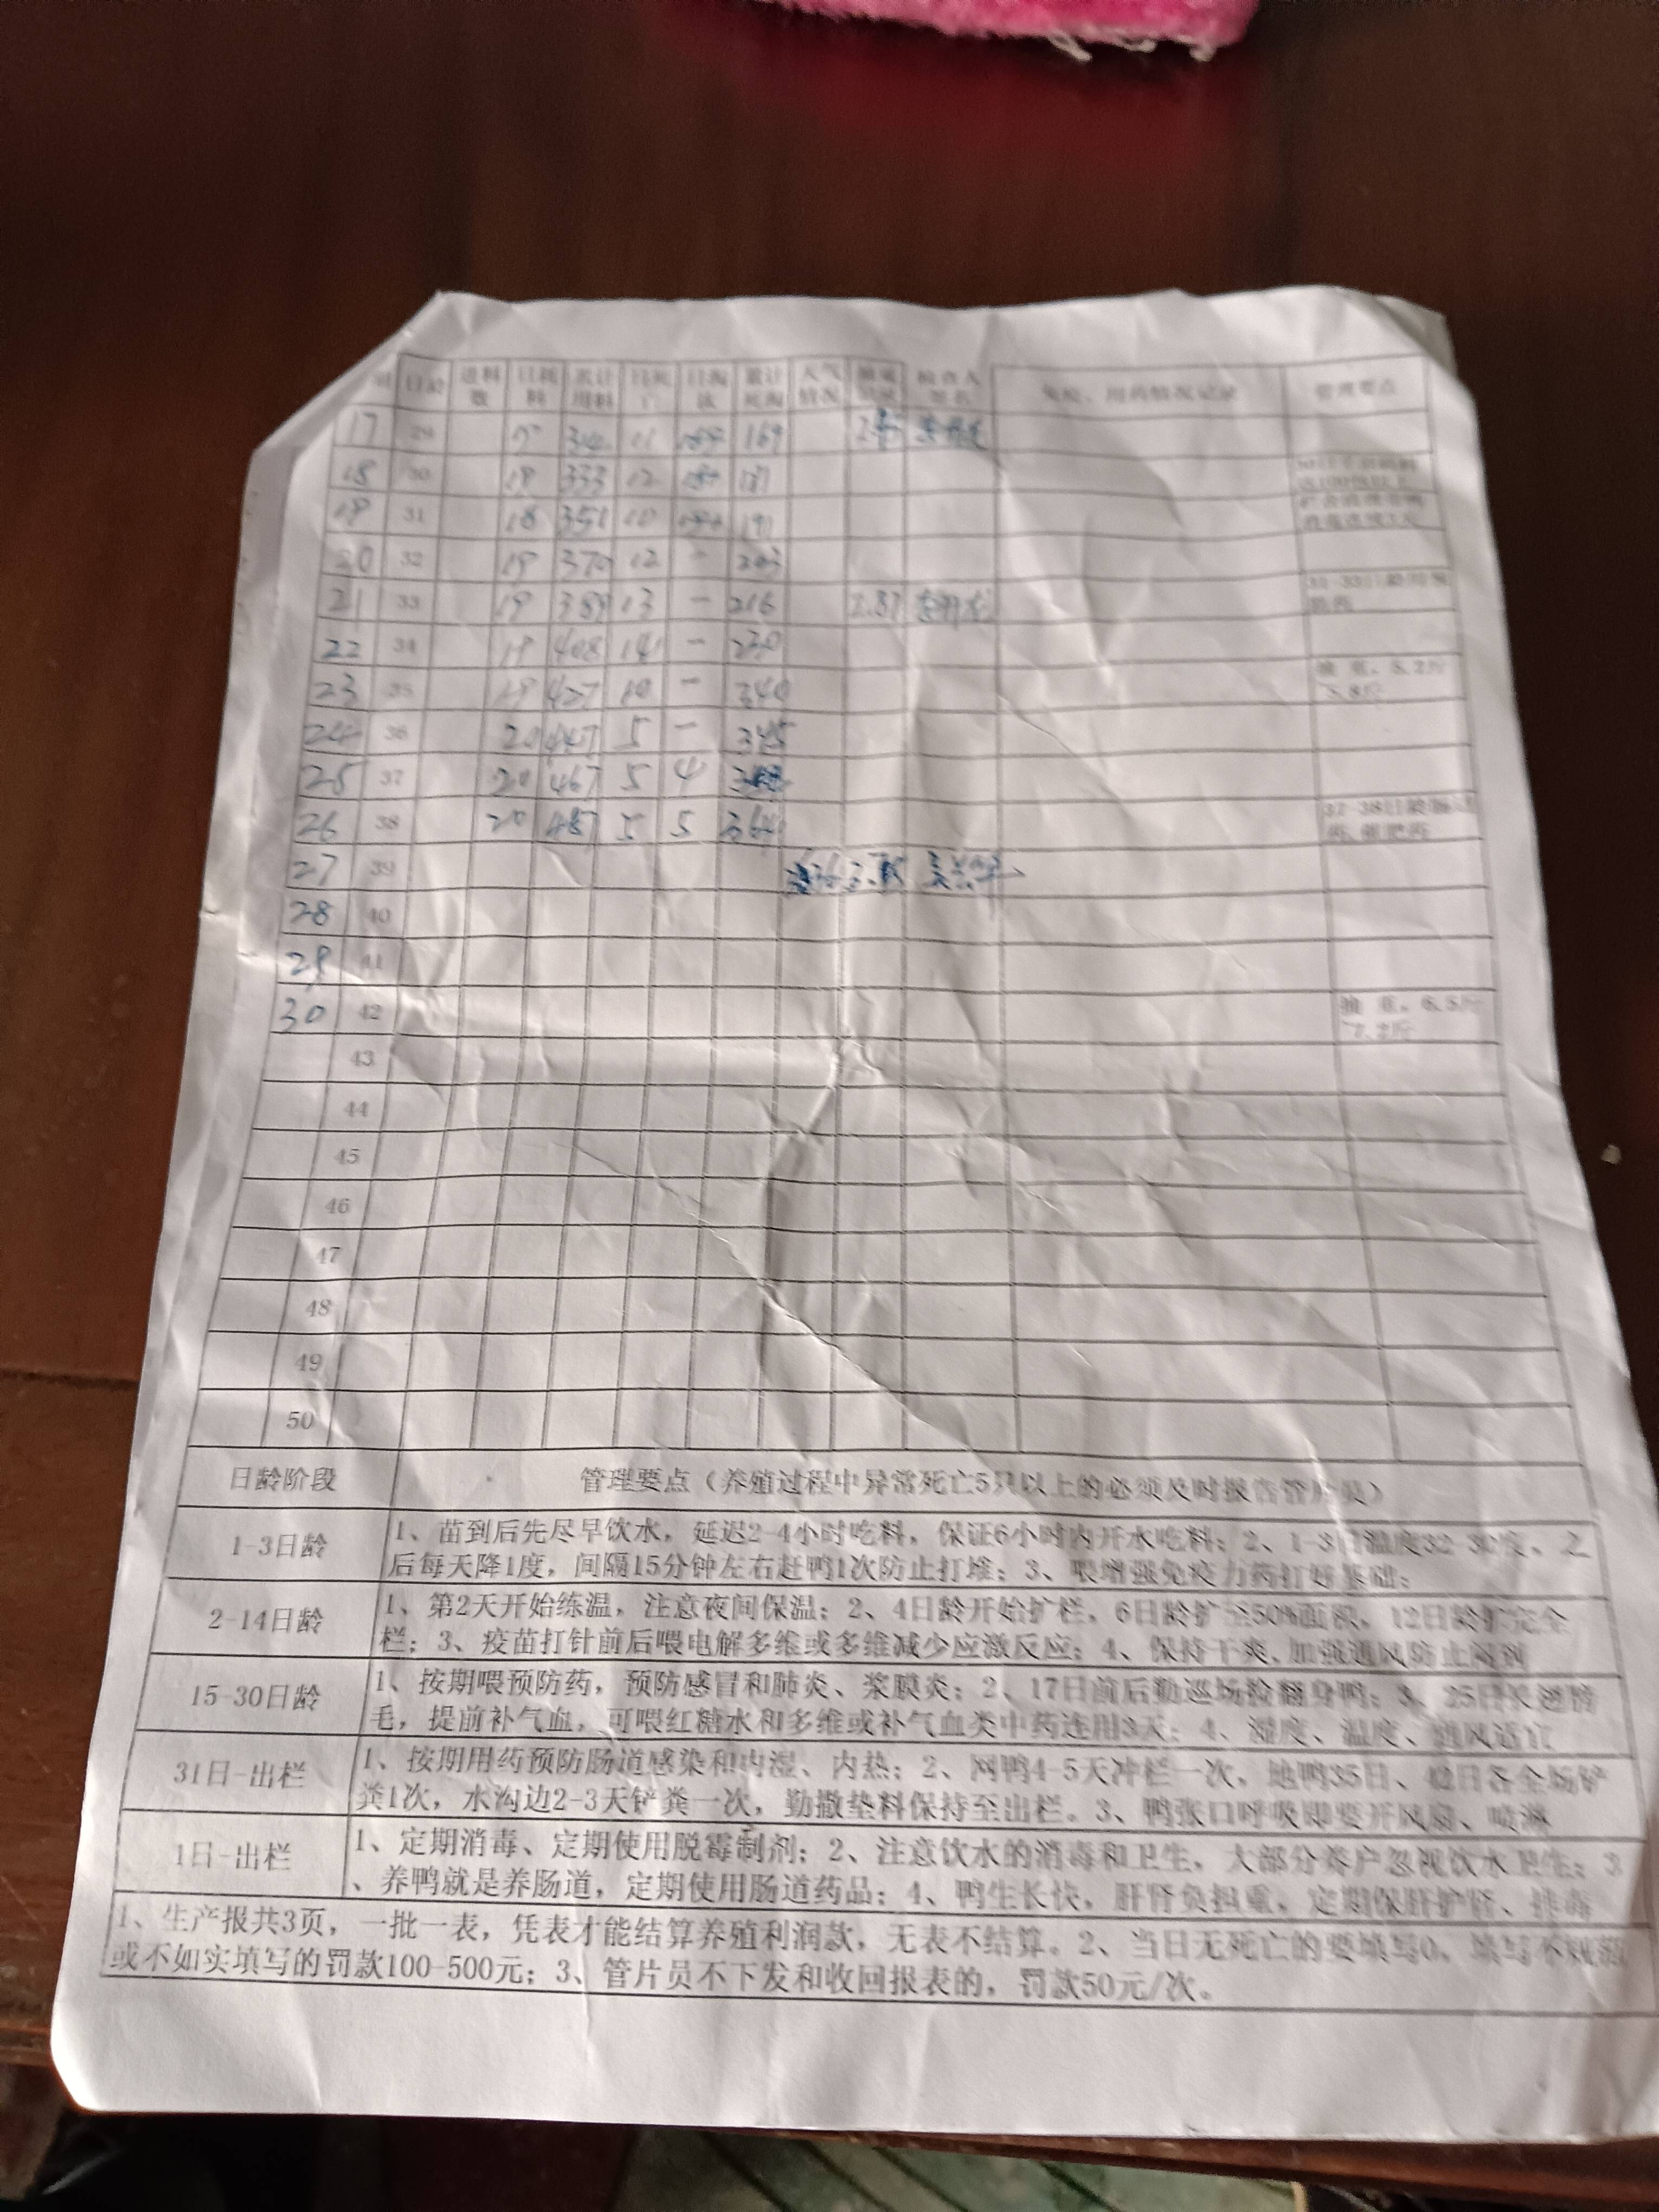 日龄 进料数 日耗料 累计用料 日死亡 日淘汰 累计死淘 天气情况 检查人签名 免疫、用药情况记录 管理要点
17 29 11 169
18 30 18 333 12 181
19 31 18 351 10 191
20 32 19 370 12 - 203
21 33 19 389 13 - 216 2.87
22 34 19 408 14 - 230
23 35 19 427 10 - 340
24 36 20 447 5 - 345
25 37 20 467 5 4
26 38 20 487 5 5 364
27 39
28 40
29 41
30 42
43
44
45
46
47
48
49
50
日龄阶段 管理要点(养殖过程中异常死亡5只以上的必须及时报告管片员)
1-3日龄 1、苗到后先尽早饮水,延迟2-4小时吃料,保证6小时内开水吃料;2、1-3日温度32-30度,之
后每天降1度,间隔15分钟左右赶鸭1次防止打堆;3、喂增强免疫力药打好基础;
2-14日龄 1、第2天开始练温,注意夜间保温;2、4日龄开始扩栏,6日龄扩至50%面积,12日龄扩完全
栏;3、疫苗打针前后喂电解多维或多维减少应激反应;4、保持干爽、加强通风防止
15-30日龄 1、按期喂预防药,预防感冒和肺炎、浆膜炎;2、17日前后勤巡场检翻身鸭;3、25日长翅膀
毛,提前补气血,可喂红糖水和多维或补气血类中药连用3天;4、湿度、温度、通风适宜
31日-出栏 1、按期用药预防肠道感染和内湿、内热;2、网鸭4-5天冲栏一次,地鸭35日、42日各全场铲
粪1次,水沟边2-3天铲粪一次,勤撒垫料保持至出栏。3、鸭张口呼吸即要开风扇、喷淋
1日-出栏 1、定期消毒、定期使用脱霉制剂;2、注意饮水的消毒和卫生,大部分养户忽视饮水卫生;3
、养鸭就是养肠道,定期使用肠道药品;4、鸭生长快,肝肾负担重,定期保肝护肾、排毒
1、生产报共3页,一批一表,凭表才能结算养殖利润款,无表不结算。2、当日无死亡的要填写0,填写不规范
或不如实填写的罚款100-500元;3、管片员不下发和收回报表的,罚款50元/次。